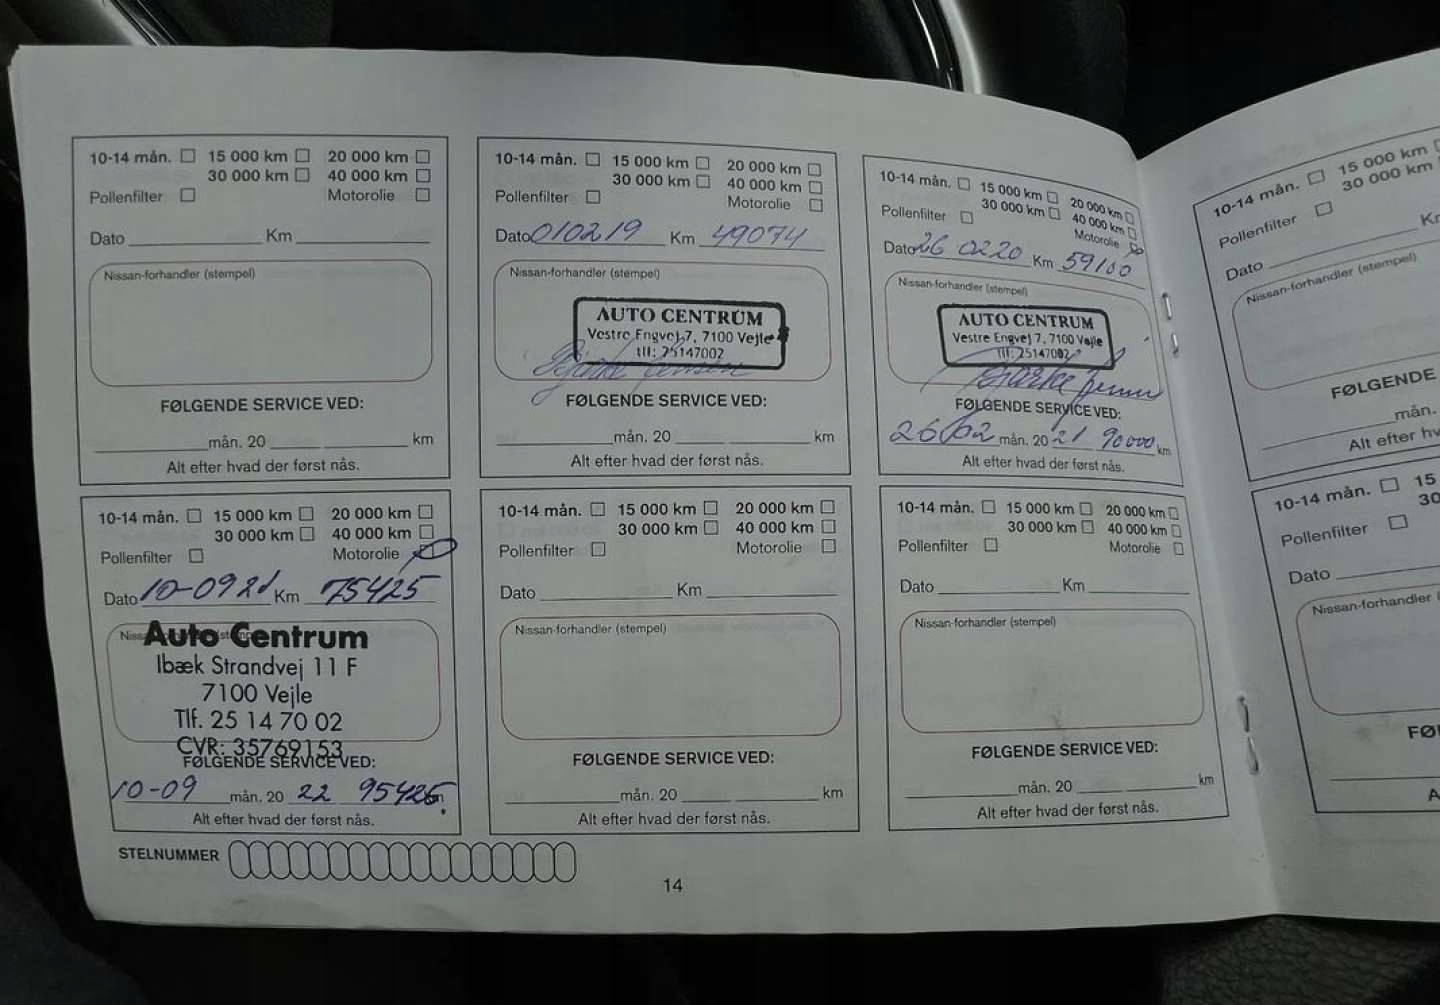 10-14 mån. 15 000 km 20 000 km
30 000 km 40 000 km
Pollenfilter Motorolie
Dato Km
Nissan-forhandler (stempel)
FØLGENDE SERVICE VED:
mån. 20 km
Alt efter hvad der først nås.
10-14 mån. 15 000 km 20 000 km
30 000 km 40 000 km
Pollenfilter Motorolie
Dato 010219 Km 49074
Nissan-forhandler (stempel)
AUTO CENTRUM
Vestre Engvej 7, 7100 Vejle
tlf: 25147002
FØLGENDE SERVICE VED:
mån. 20 km
Alt efter hvad der først nås.
10-14 mån. 15 000 km 20 000 km
30 000 km 40 000 km
Pollenfilter Motorolie
Dato 26 0220 Km 59100
Nissan-forhandler (stempel)
AUTO CENTRUM
Vestre Engvej 7, 7100 Vejle
tlf: 25147002
FØLGENDE SERVICE VED:
26/02 mån. 20 21 90000 km
Alt efter hvad der først nås.
10-14 mån. 15 000 km
30 000 km
Pollenfilter
Dato Km
Nissan-forhandler (stempel)
FØLGENDE
mån.
Alt efter hv
10-14 mån. 15 000 km 20 000 km
30 000 km 40 000 km
Pollenfilter Motorolie
Dato 10-0921 Km 75425
Auto Centrum
Ibæk Strandvej 11 F
7100 Vejle
Tlf. 25 14 70 02
CVR: 35769153
FØLGENDE SERVICE VED:
10-09 mån. 20 22 95425
Alt efter hvad der først nås.
10-14 mån. 15 000 km 20 000 km
30 000 km 40 000 km
Pollenfilter Motorolie
Dato Km
Nissan-forhandler (stempel)
FØLGENDE SERVICE VED:
mån. 20 km
Alt efter hvad der først nås.
10-14 mån. 15 000 km 20 000 km
30 000 km 40 000 km
Pollenfilter Motorolie
Dato Km
Nissan-forhandler (stempel)
FØLGENDE SERVICE VED:
mån. 20 km
Alt efter hvad der først nås.
10-14 mån. 15
30
Pollenfilter
Dato
Nissan-forhandler
STELNUMMER
14